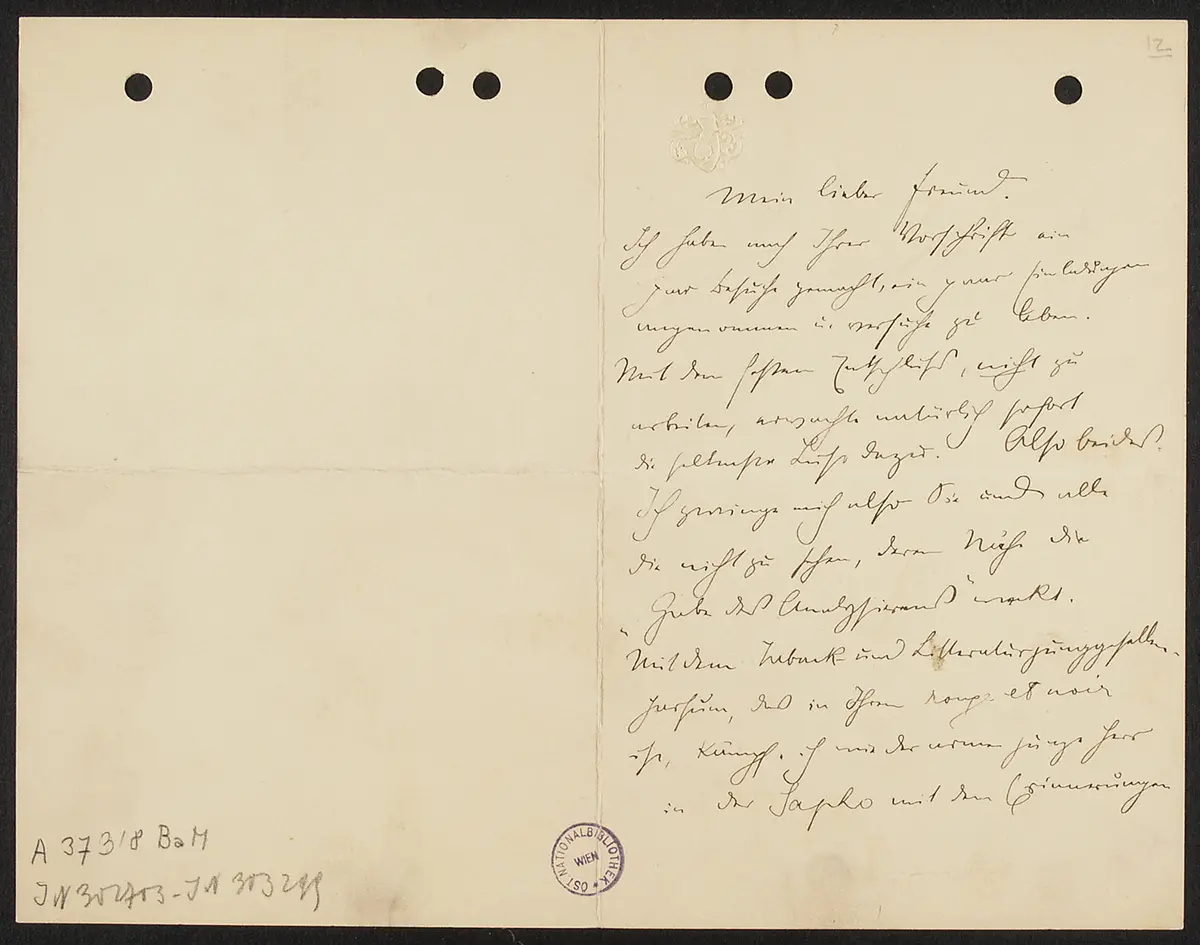 A 373/8 BaM
IN 302703-IN 303299
ÖST NATIONALBIBLIOTHEK
WIEN
12
Mein lieber Freund.
Ich habe nach Ihrer Vorschrift ein
paar Besuche gemacht, ein paar Einladungen
angenommen u. versuche zu leben.
Mit dem festen Entschluss, nicht zu
arbeiten, erwachte natürlich sofort
die seltenste Lust dazu. Also beides.
Ich zwinge mich also Sie und alle
die nicht zu sehen, deren Nähe die
"Gabe des Analysierens" weckt.
Mit dem Taback- und Litteraturjunggesellen-
parfum, das in Ihrem rouge et noir
ist, kämpfe ich wie der arme junge Herr
in der Sapho mit den Erinnerungen